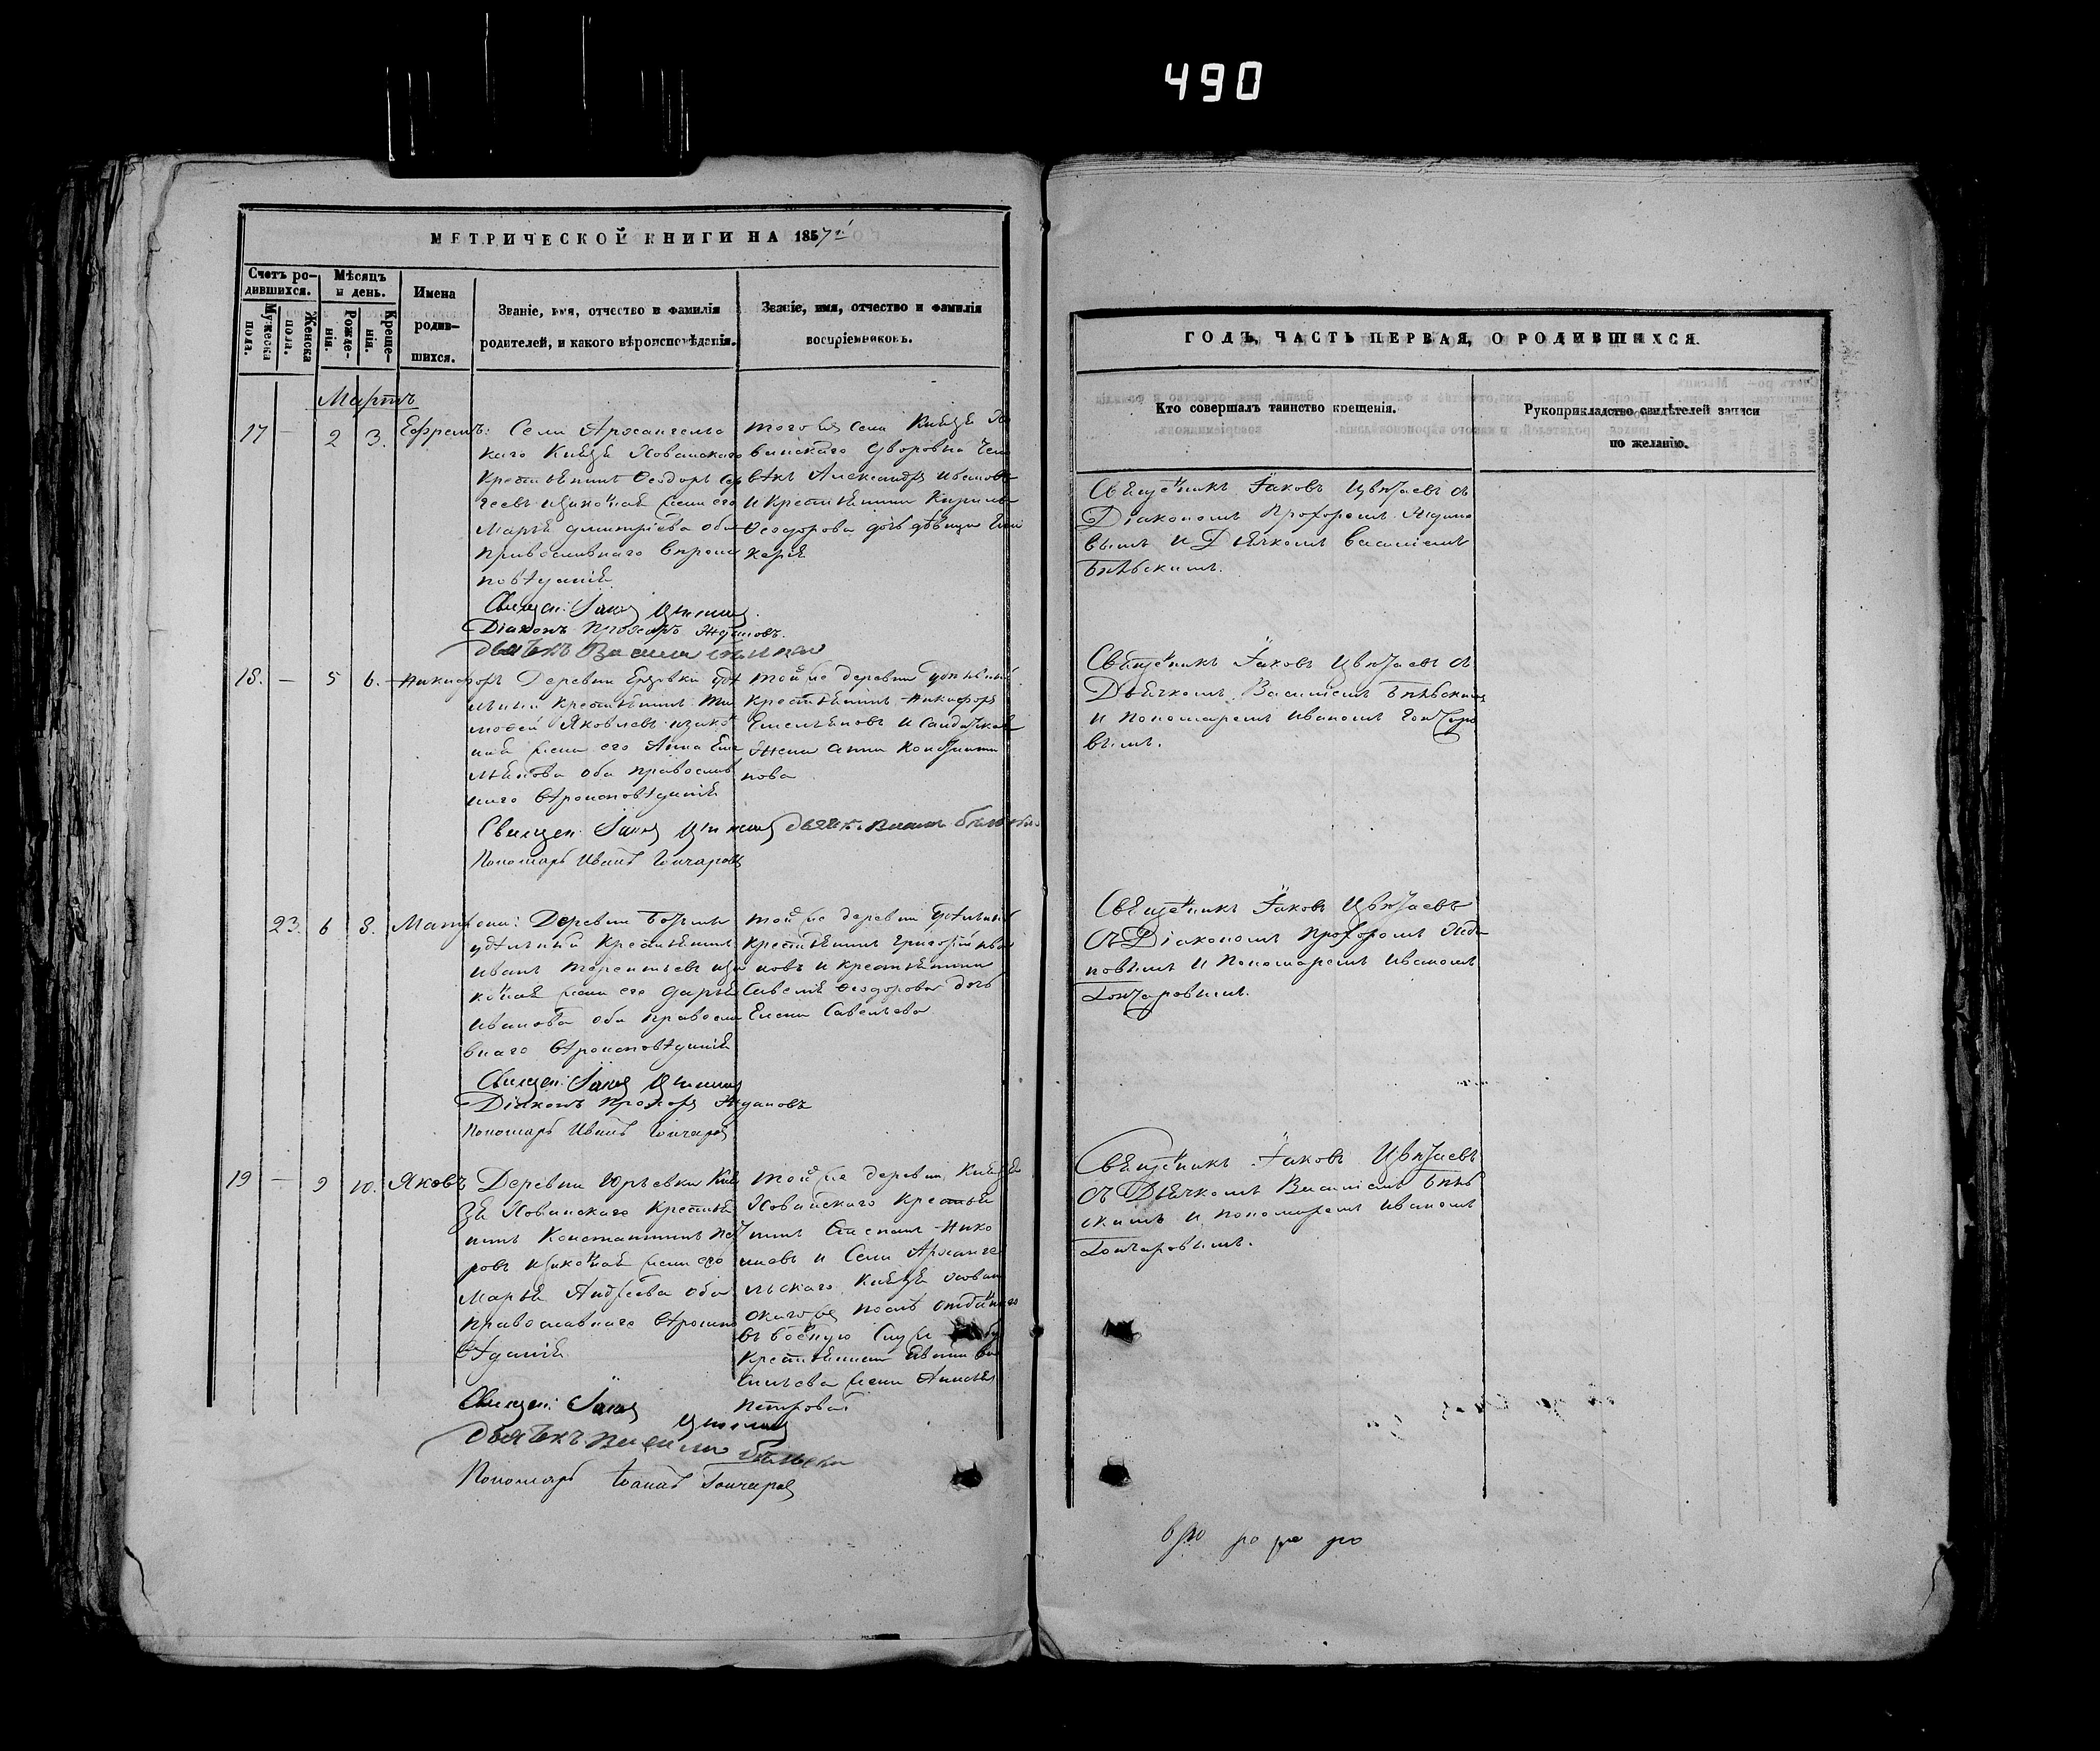 490
МЕТРИЧЕСКОЙ КНИГИ НА 1857й
Счетъ родившихся.
Мужеска пола.
Женска пола.
Мѣсяцъ и день.
Рожденія.
Крещенія.
Имена родившихся.
Званіе, имя, отчество и фамилія
родителей, и какого вѣроисповѣданія.
Званіе, имя, отчество и фамилія
воспріемниковъ.
Мартъ
17 — 2 3. Ефремъ:
Села Архангельс
каго Князя Хованскаго
Крестьянинъ Ѳеодоръ Сер
геевъ и законая жена его
Марья Димитріева оба
православнаго вѣроис
повѣданія
Священ: Іаковъ
Діаконъ Прохоръ Ждановъ.
Дьячекъ Василій
того же села Князя Хо
ванскаго дворовой чело
вѣкъ Александръ Ивановъ
и Крестьянина Кирила
Ѳеодорова дочь дѣвица
18. — 5 6. Никифоръ
Деревни удѣ
льный Крестьянинъ Ти
моѳей Яковлевъ и закон
ная жена его Анна Еме
льянова оба православ
наго вѣроисповѣданія
Священ: Іаковъ
Пономарь Иванъ Гончаровъ
той же деревни удѣльный
крестьянинъ Никифоръ
Емельяновъ и Солдатская
жена Анна Константи
нова
23. 6 8. Матрена:
Деревни
удѣльный Крестьянинъ
Иванъ Терентьевъ и за
коная жена его Дарья
Иванова оба правосла
внаго вѣроисповѣданія
Священ: Іаковъ
Діаконъ Прохоръ Ждановъ
Пономарь Иванъ Гончаровъ
той же деревни удѣльный
крестьянинъ Григорій Ива
новъ и крестьянина
Савелія Ѳеодорова дочь
Елена Савельева
19 — 9 10. Яковъ
Деревни Юрьевки Кня
зя Хованскаго Крестья
нинъ Константинъ Пет
ровъ и законая жена его
Марья Андреева оба
православнаго вѣроиспо
вѣданія
Священ: Іаковъ
Дьячекъ Василій
Пономарь Іоаннъ Гончаровъ
той же деревни Князя
Хованскаго крестья
нинъ Степанъ Нико
лаевъ и Села Арханге
льскаго Князя Хован
скаго же послѣ отданаго
въ военую службу
Крестьянина Ва
сильева жена
Петрова
ГОДЪ, ЧАСТЬ ПЕРВАЯ, О РОДИВШИХСЯ.
Кто совершалъ таинство крещенія.
Рукоприкладство свидѣтелей записи
по желанію.
Священикъ Іаковъ Цвѣтаевъ съ
Діакономъ Прохоромъ Ждано
вымъ и Дьячкомъ Василіемъ
Бѣльскимъ.
Священикъ Іаковъ Цвѣтаевъ съ
Дьячкомъ Василіемъ Бѣльскимъ
и пономаремъ Иваномъ Гончаро
вымъ.
Священикъ Іаковъ Цвѣтаевъ
съ Діакономъ Прохоромъ Жда
новымъ и Пономаремъ Иваномъ
Гончаровымъ.
Священикъ Іаковъ Цвѣтаевъ
съ Дьячкомъ Василіемъ Бѣль
скимъ и пономаремъ Иваномъ
Гончаровымъ.